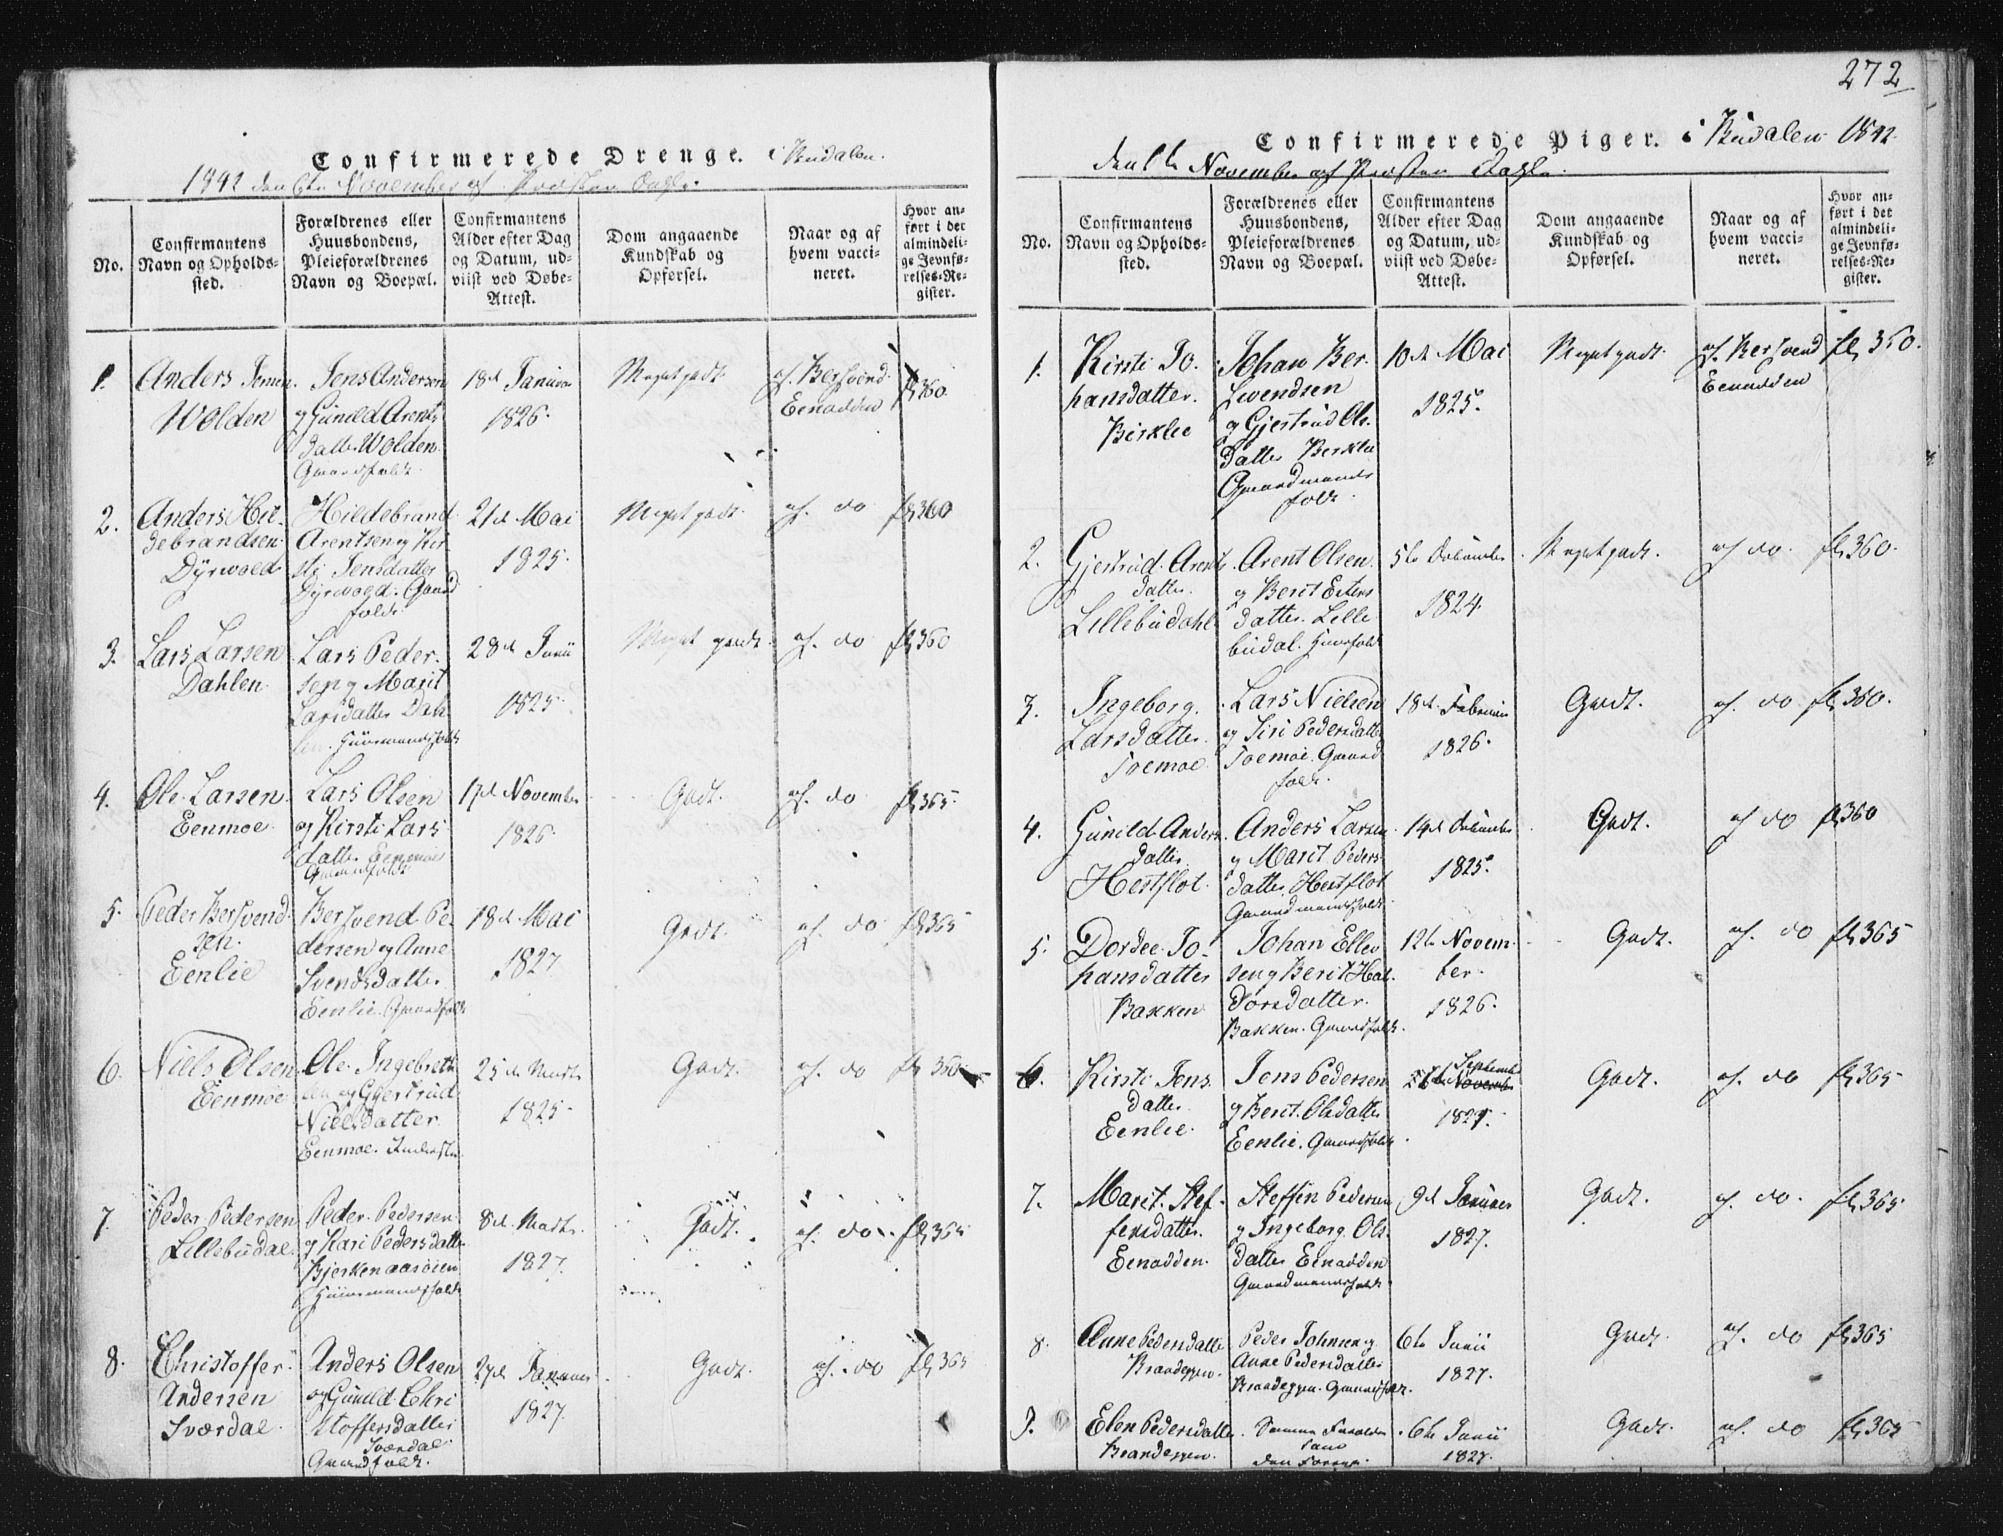 Confirmerede Drenge. i Budalen.
1842 den 6te November af Præsten Dahl.
No.
Confirmantens
Navn og Opholds-
sted.
Forældrenes eller
Huusbondens,
Pleieforældrenes
Navn og Boepæl.
Confirmantens
Alder efter Dag
og Datum, ud-
viist ved Døbe-
Attest.
Dom angaaende
Kundskab og
Opførsel.
Naar og af
hvem vacci-
neret.
Hvor an-
ført i det
almindeli-
ge Jevnfø-
relses-Re-
gister.
1. Anders Jensen
Wolden
Jens Andersen
og Gunild Arents
datter Wolden
Gaardfolk.
18de Januar
1826.
Meget godt.
af Bersvend
Eenodden
fl 360
2. Anders Hil-
debrandsen
Dyrvold
Hildebrand
Arentsen og Kir
sti Jensdatter
Dyrvold. Gaard
folk.
21de Mai
1825.
Meget godt.
af. do
fl 360
3. Lars Larsen
Dahlen
Lars Peder-
sen og Marit
Larsdatter Dah
len. Huusmandsfolk
28de Junii
1825.
Meget godt.
af. do
fl 360
4. Ole Larsen
Eenmoe
Lars Olsen
og Kirsti Lars
datter Eenmoe
Gaardfolk
17de November
1826.
Godt.
af. do
fl 365.
5. Peder Bersvend
sen.
Eenlie
Bersvend Pe-
dersen og Anne
Svendsdatter
Eenlie. Gaardfolk
18de Mai
1827
Godt.
af. do
fl 365
6. Niels Olsen
Eenmoe
Ole Ingebrett
sen og Gjertrud
Nielsdatter
Eenmoe. Inderster
25de Marts
1825.
Godt.
af. do
fl 360
7. Peder Pedersen
Lillebudal.
Peder Pedersen
og Kari Pedersdatter
Bjerkenaasøien
Huusmandsfolk
8de Marts
1827.
Godt.
af. do.
fl 365
8. Christoffer
Andersen
Sværdal.
Anders Olsen
og Gunild Chri
stoffersdatter
Sværdal
Gaardfolk.
27de Januar
1827.
Godt.
af. do
fl 365
272
Confirmerede Piger. i Budalen 1842
den 6te November af Præsten Dahl.
No.
Confirmantens
Navn og Opholds-
sted.
Forældrenes eller
Huusbondens,
Pleieforældrenes
Navn og Boepæl.
Confirmantens
Alder efter Dag
og Datum, ud-
viist ved Døbe-
Attest.
Dom angaaende
Kundskab og
Opførsel.
Naar og af
hvem vacci-
neret.
Hvor an-
ført i det
almindeli-
ge Jevnfø-
relses-Re-
gister.
1. Kirsti Jo-
hansdatter.
Birklie
Johan Ber-
svendsen
og Gjertrud Ols-
datter Berklie
Gaardmands
folk.
10de Mai
1825.
Meget godt.
af. Bersvend
Eenodden
fl 360.
2. Gjertrud Arents
datter
Lillebudahl
Arent Olsen.
og Berit Estens
datter Lille
budal. Huusfolk
5te December
1824.
Meget godt.
af do.
fl 360.
3. Ingeborg
Larsdatter
Toemoe.
Lars Nielsen
og Siri Pedersdatter
Toemoe. Gaard
folk.
18de Februar
1826.
Godt.
af. do
fl 360.
4. Gunild Anders
datter
Hestflot.
Anders Larsen
og Marit Peders
datter Hestflot
Gaardmandsfolk
14de December
1825.
Godt.
af do
fl 360
5. Dordee Jo-
hansdatter
Bakken
Johan Ellev
sen og Berit Hal-
vorsdatter.
Bakken. Gaardfolk.
12te Novem-
ber.
1826.
Godt.
af. do
fl 365
6. Kirsti Jens
datter
Eenlie.
Jens Pedersen
og Berit Olsdatter
Eenlie. Gaardfolk.
September
November
1827.
Godt.
af. do
fl 365
7. Marit Stef-
fensdatter.
Eenodden.
Steffen Pedersen
og Ingeborg Ols-
datter Eenodden
Gaardmandsfolk
9de Januar
1827.
Godt.
af. do.
fl 365
8. Anne Pedersdatter
Brandeggen.
Peder Johnsen og
Anne Pedersdatter
Brandeggen. Gaardfolk.
6te Junii
1827.
Godt.
af. do
fl 365
9. Elen Pedersdatter
Brandeggen.
Samme Forældre
som
den Forrige.
6te Junii
1827.
Godt.
af. do
fl 365